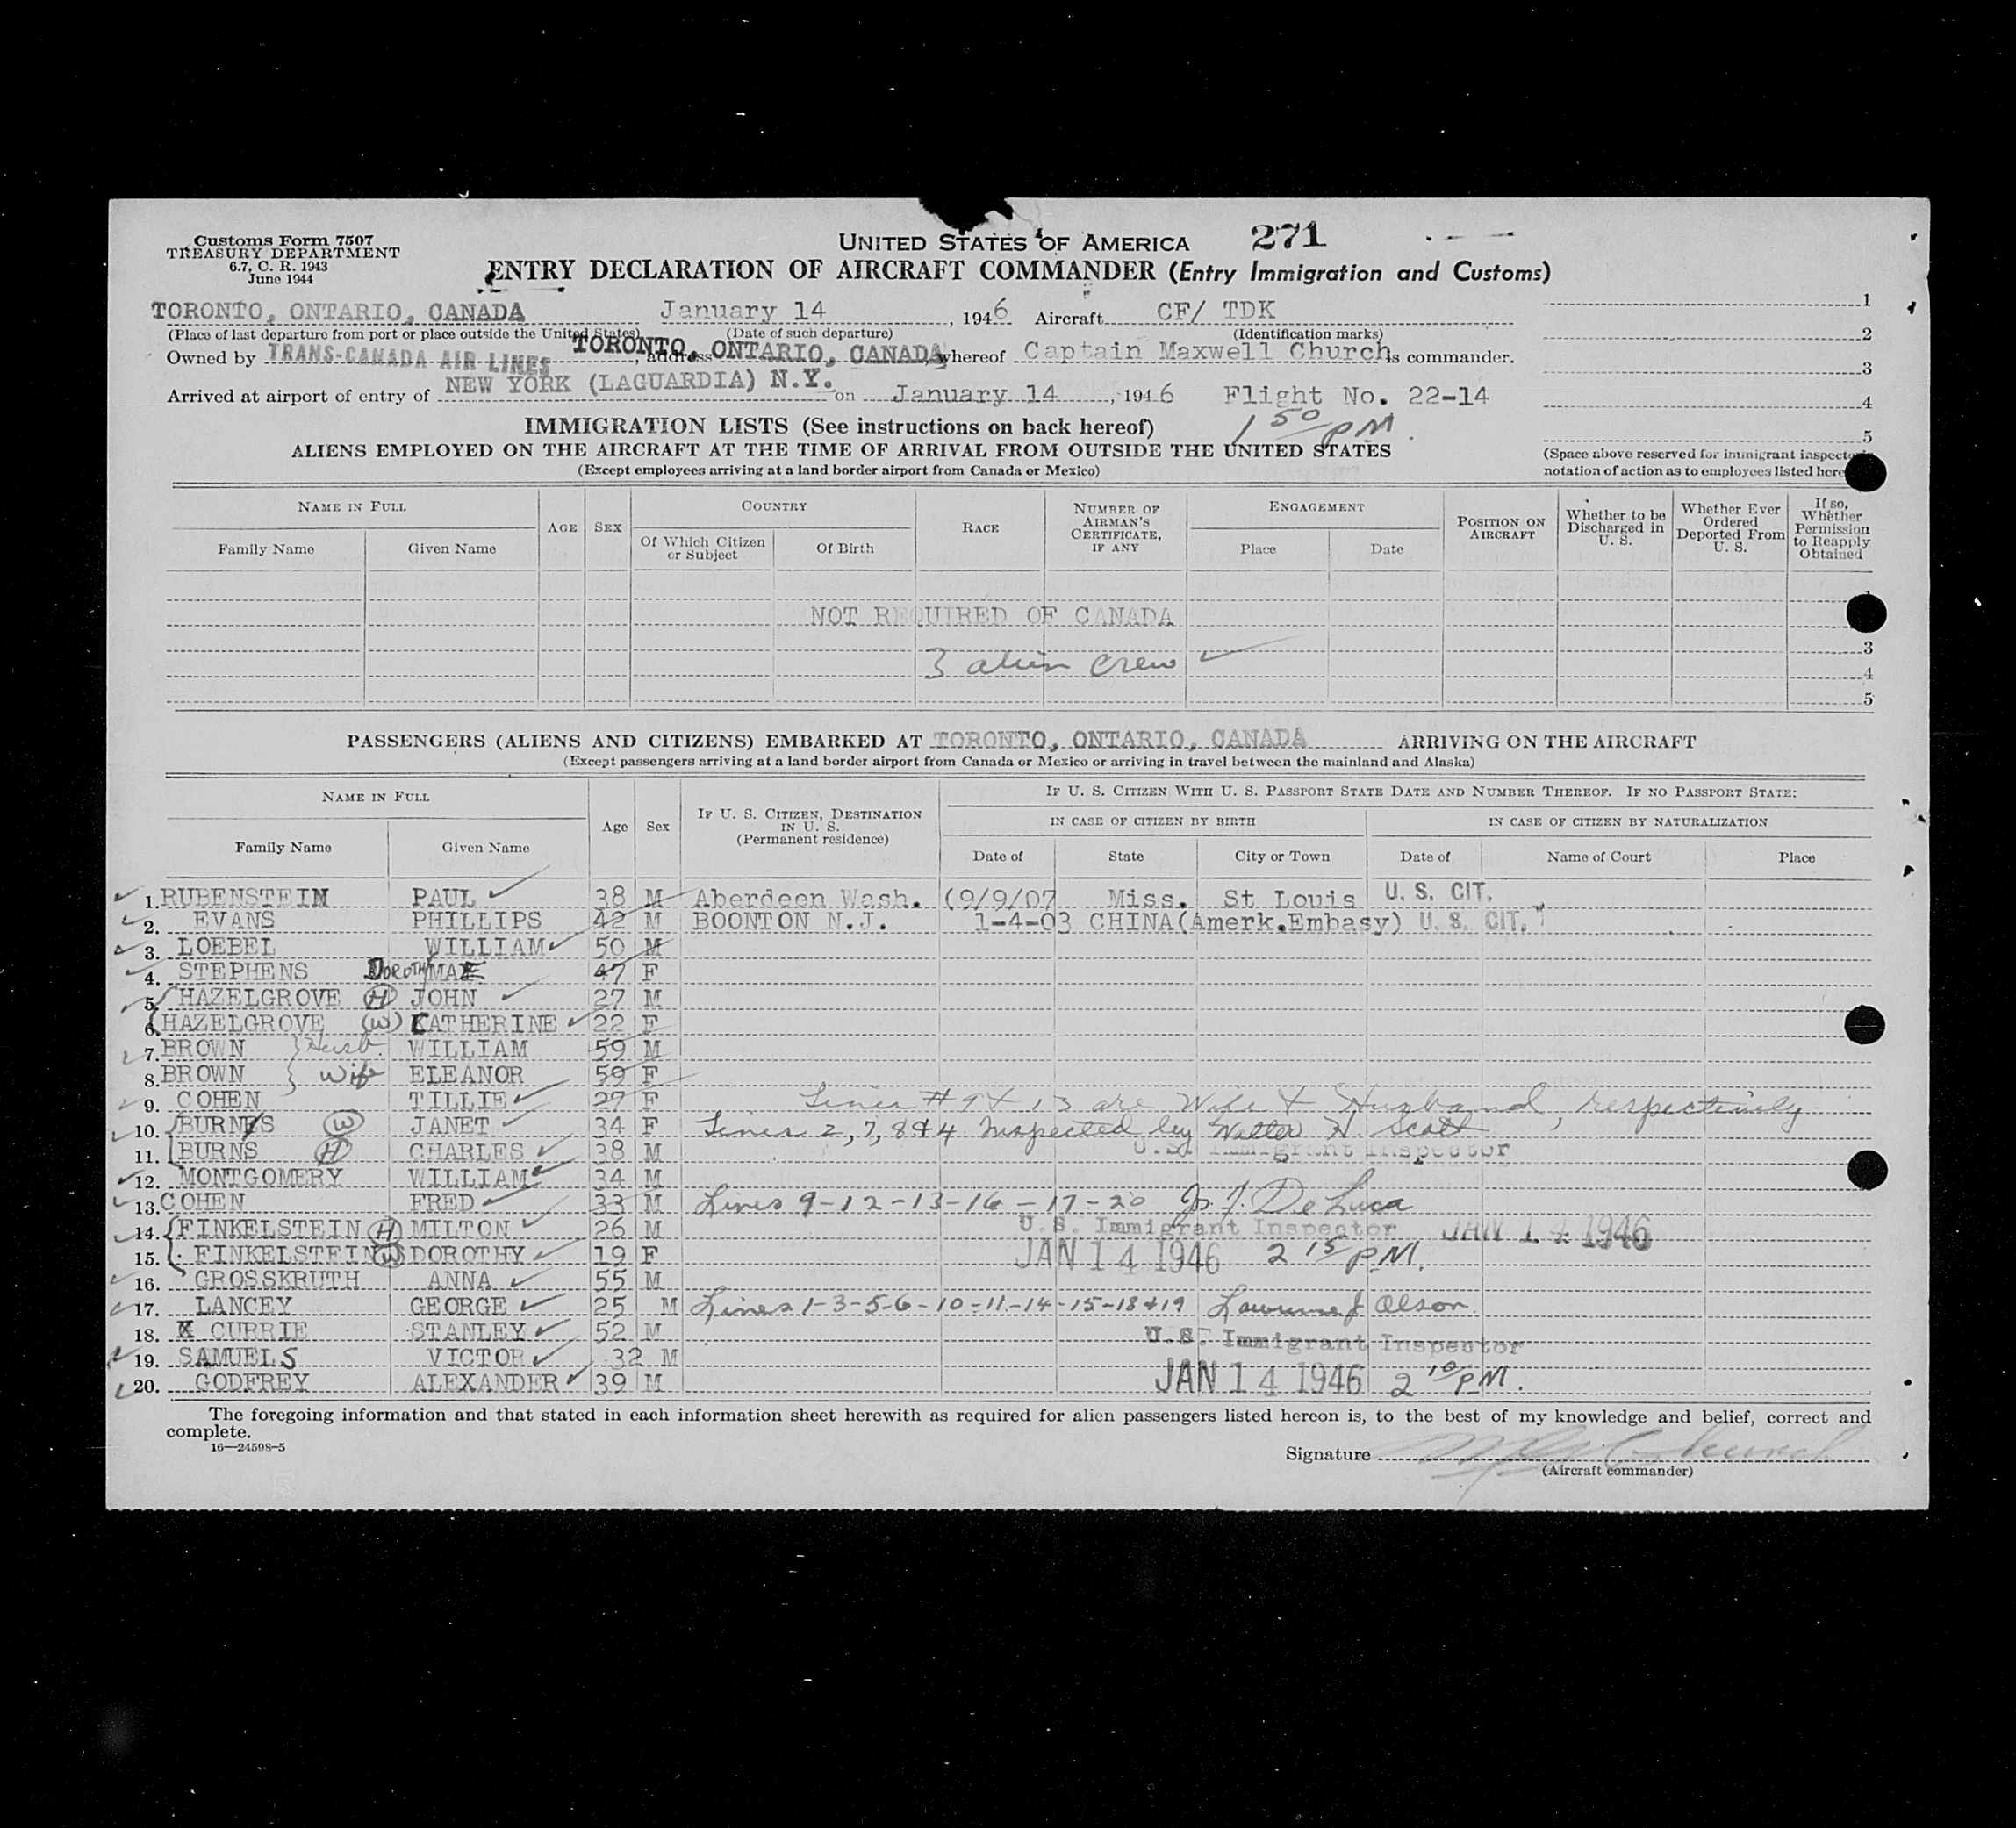 Customs Form 7507
TREASURY DEPARTMENT
6.7, C. R. 1943
June 1944
UNITED STATES OF AMERICA 271
ENTRY DECLARATION OF AIRCRAFT COMMANDER (Entry Immigration and Customs)
TORONTO, ONTARIO, CANADA January 14, 1946 Aircraft CF/ TDK 1
(Place of last departure from port or place outside the United States) (Date of such departure) (Identification marks) 2
Owned by TRANS-CANADA AIR LINES, address TORONTO, ONTARIO, CANADA, whereof Captain Maxwell Church is commander.
3
Arrived at airport of entry of NEW YORK (LAGUARDIA) N.Y. on January 14, 1946 Flight No. 22-14 4
IMMIGRATION LISTS (See instructions on back hereof) 1 50/PM 5
ALIENS EMPLOYED ON THE AIRCRAFT AT THE TIME OF ARRIVAL FROM OUTSIDE THE UNITED STATES
(Space above reserved for immigrant inspector's
(Except employees arriving at a land border airport from Canada or Mexico) notation of action as to employees listed here
NAME IN FULL AGE SEX COUNTRY RACE NUMBER OF AIRMAN'S CERTIFICATE, IF ANY ENGAGEMENT POSITION ON AIRCRAFT Whether to be Discharged in U. S. Whether Ever Ordered Deported From U. S. If so, Whether Permission to Reapply Obtained
Family Name Given Name Of Which Citizen or Subject Of Birth Place Date
NOT REQUIRED OF CANADA
3
3 alien crew 4
5
PASSENGERS (ALIENS AND CITIZENS) EMBARKED AT TORONTO, ONTARIO, CANADA ARRIVING ON THE AIRCRAFT
(Except passengers arriving at a land border airport from Canada or Mexico or arriving in travel between the mainland and Alaska)
NAME IN FULL Age Sex IF U. S. CITIZEN, DESTINATION IN U. S. (Permanent residence) IF U. S. CITIZEN WITH U. S. PASSPORT STATE DATE AND NUMBER THEREOF. IF NO PASSPORT STATE:
IN CASE OF CITIZEN BY BIRTH IN CASE OF CITIZEN BY NATURALIZATION
Family Name Given Name Date of State City or Town Date of Name of Court Place
1. RUBENSTEIN PAUL 38 M Aberdeen Wash. (9/9/07 Miss. St Louis U. S. CIT.
2. EVANS PHILLIPS 42 M BOONTON N.J. 1-4-03 CHINA(Amerk.Embasy) U. S. CIT.
3. LOEBEL WILLIAM 50 M
4. STEPHENS DOROTHY MAE 47 F
5. HAZELGROVE (H) JOHN 27 M
6. HAZELGROVE (W) KATHERINE 22 F
7. BROWN Husb. WILLIAM 59 M
8. BROWN Wife ELEANOR 59 F
9. COHEN TILLIE 27 F Lines # 9 & 13 are Wife & Husband, respectively
10. BURNS (W) JANET 34 F Lines 2, 7, 8 & 4 Inspected by Walter H Scott
11. BURNS (H) CHARLES 38 M U.S. Immigrant Inspector
12. MONTGOMERY WILLIAM 34 M
13. COHEN FRED 33 M Lines 9-12-13-16-17-20 De Luca
14. FINKELSTEIN (H) MILTON 26 M U. S. Immigrant Inspector JAN 14 1946
15. FINKELSTEIN (W) DOROTHY 19 F JAN 14 1946 2 15 P.M.
16. GROSSKRUTH ANNA 55 M
17. LANCEY GEORGE 25 M Lines 1-3-5-6-10-11-14-15-18 & 19 Lawrence J Olson
18. X CURRIE STANLEY 52 M U. S. Immigrant Inspector
19. SAMUELS VICTOR 32 M
20. GODFREY ALEXANDER 39 M JAN 14 1946 2 10 P.M.
The foregoing information and that stated in each information sheet herewith as required for alien passengers listed hereon is, to the best of my knowledge and belief, correct and
complete.
16—24598-5
Signature Church
(Aircraft commander)